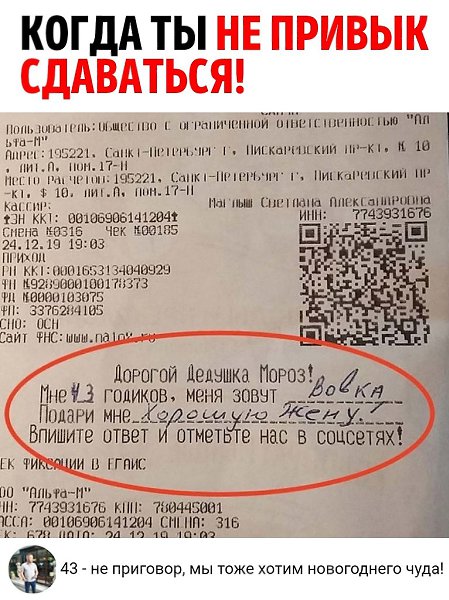 КОГДА ТЫ НЕ ПРИВЫК
СДАВАТЬСЯ!
Пользователь: Общество с ограниченной ответственностью "Ал
ьфа-М"
Адрес: 195221, Санкт-Петербург г, Пискаревский пр-кт, № 10
, лит.А, пом.17-Н
Место расчетов: 195221, Санкт-Петербург г, Пискаревский пр
-кт, $ 10, лит.А, пом.17-Н
Кассир: Светлана Александровна
ЗН ККТ: 00106906141204 ИНН: 7743931676
Смена №0316 Чек №00185
24.12.19 19:03
ПРИХОД
РН ККТ:0001653134040929
ФН №9289000100178373
ФД №0000103075
ФП: 3376284105
СНО: ОСН
Сайт ФНС:
Дорогой Дедушка Мороз!
Мне 43 годиков, меня зовут Вовка
Подари мне Хорошую Жену!
Впишите ответ и отметьте нас в соцсетях!
ЕК ФИКСАЦИИ В ЕГАИС
ОО "Альфа-М"
НН: 7743931676 КПП: 780445001
АССА: 00106906141204 СМЕНА: 316
К: 678 ДАТА: 24.12.19 19:03
43 - не приговор, мы тоже хотим новогоднего чуда!